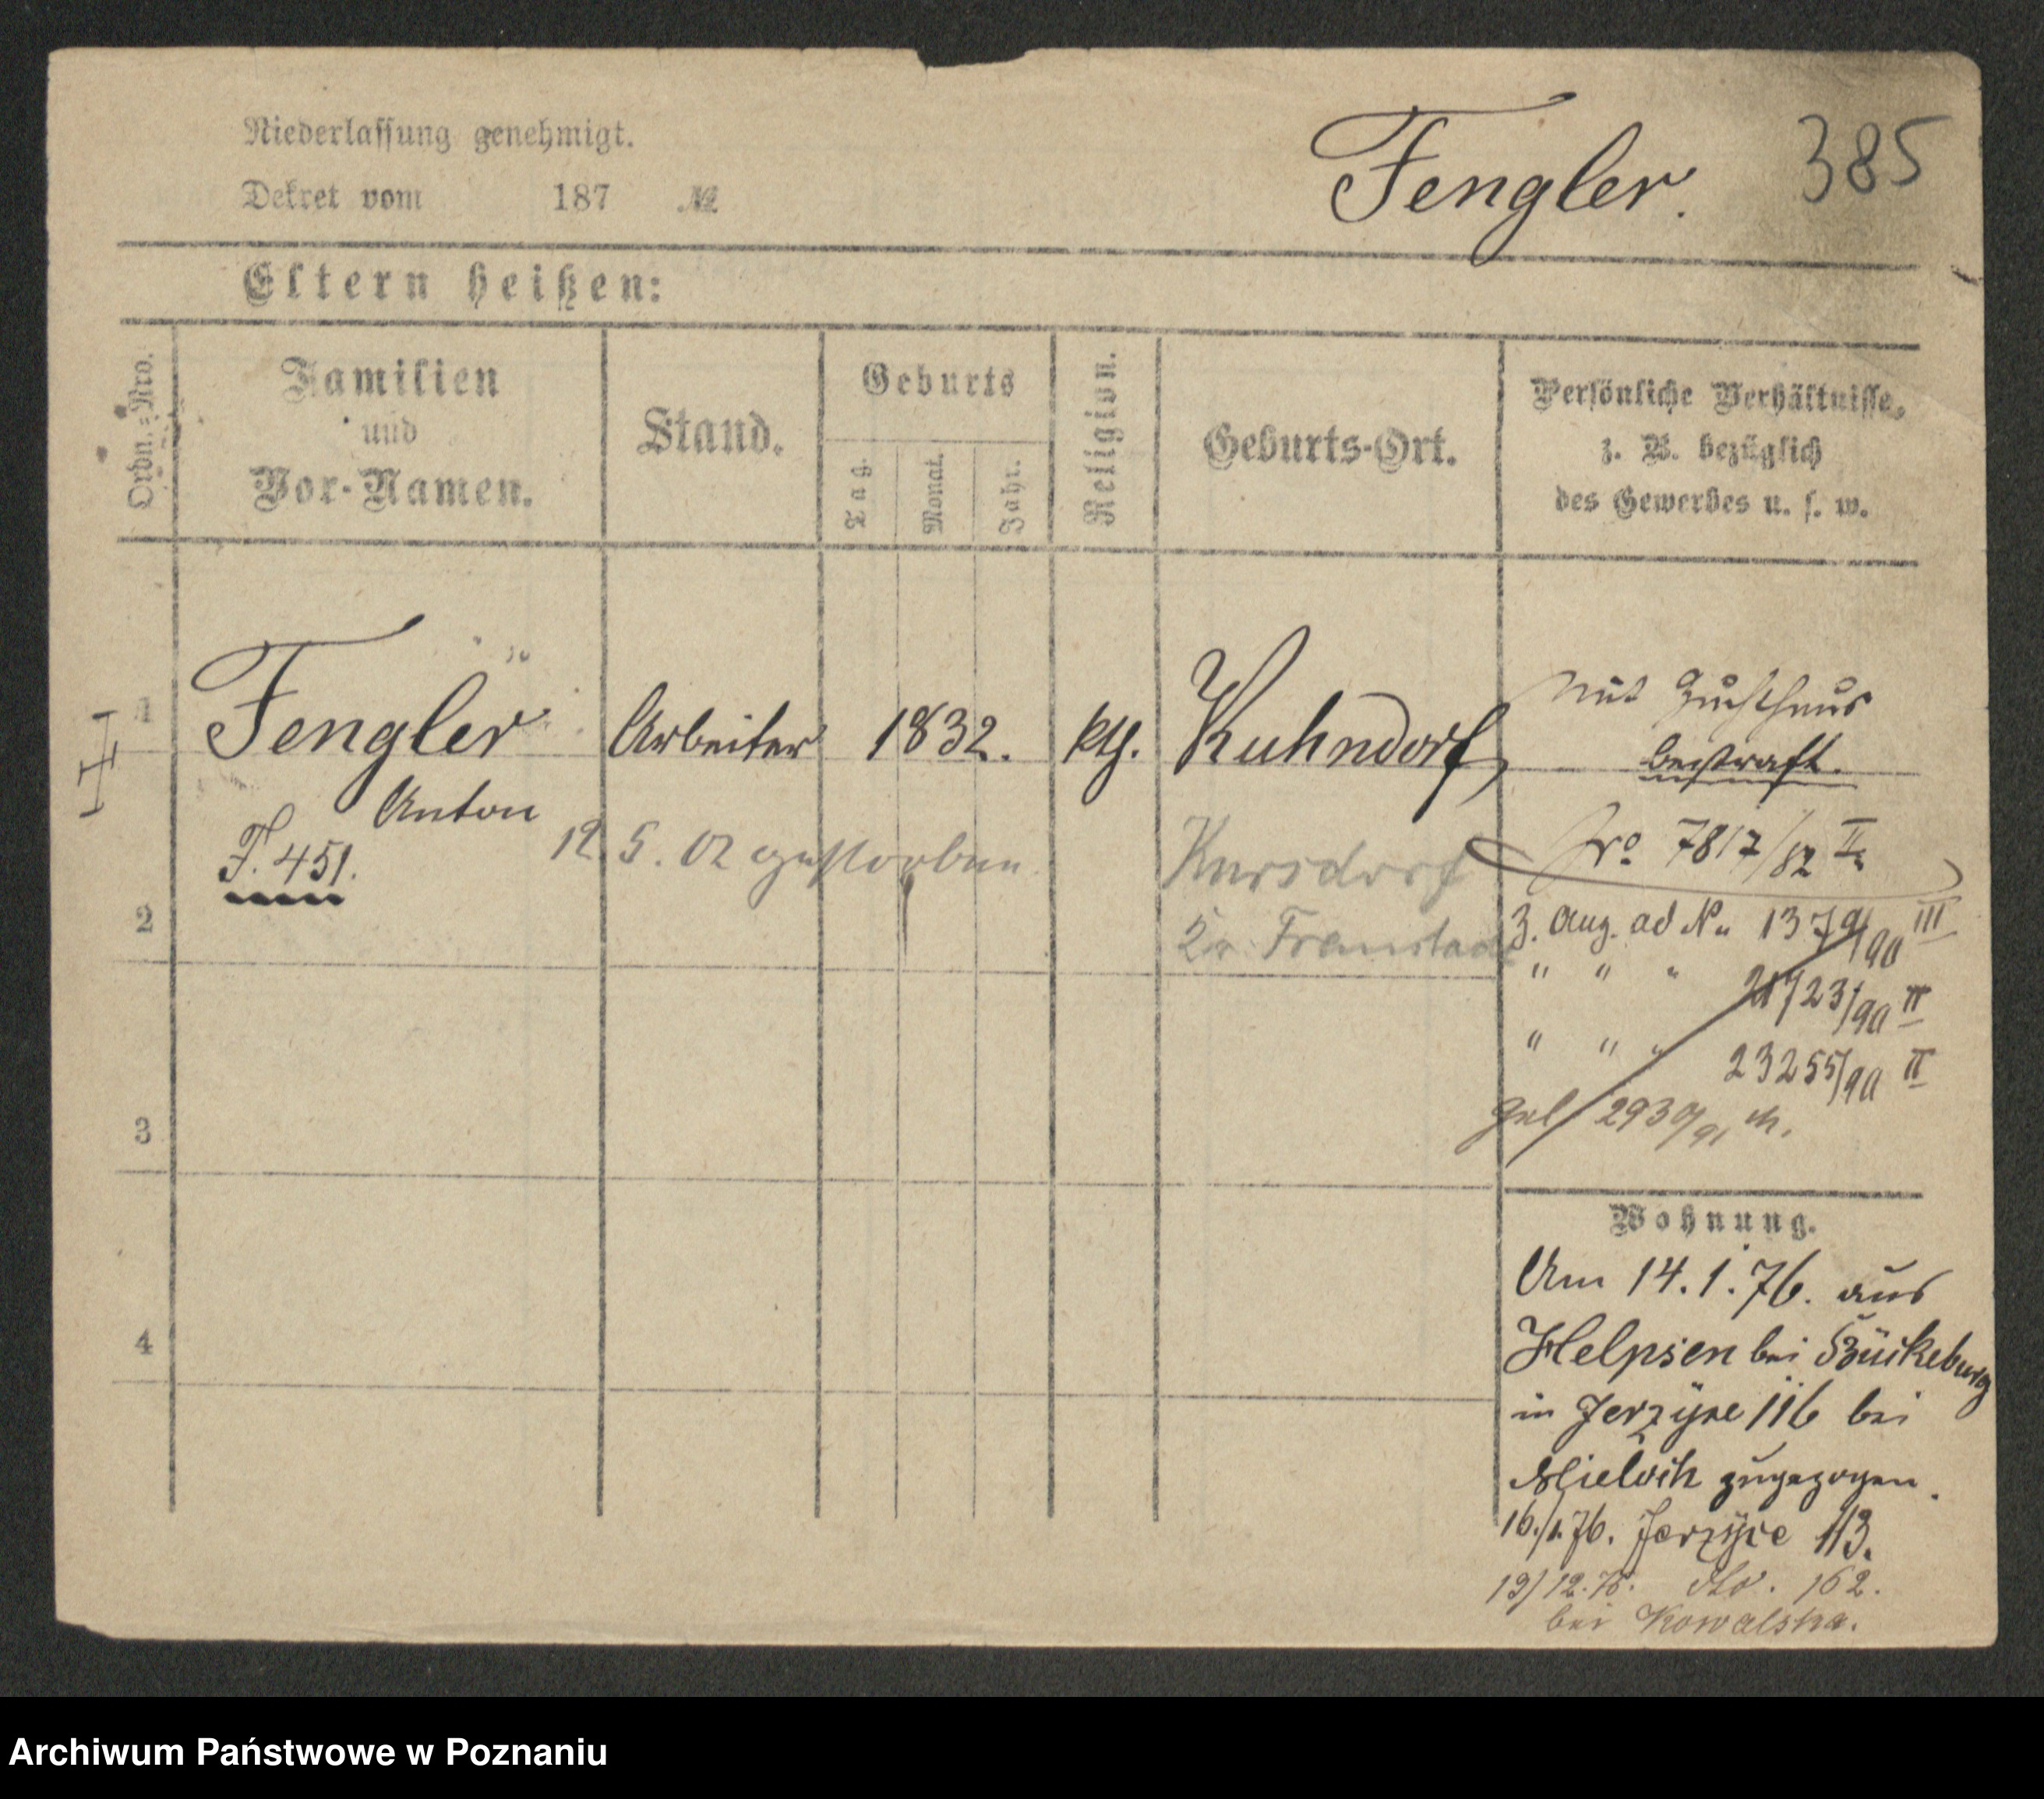 Niederlassung genehmigt.
Fengler. 385
Dekret vom 187 №
Eltern heißen:
Ordn.-Nro.
Familien
und
Vor-Namen.
Stand.
Geburts
Tag. Monat. Jahr.
Religion.
Geburts-Ort.
Persönliche Verhältnisse,
z. B. bezüglich
des Gewerbes u. s. w.
mit Zuchthaus
1 Fengler Arbeiter 1832. kth. Kuhndorf
bestraft.
Anton
F. 451.
12. 5. 02 gestorben
Kursdorf
Kr. Fraustadt
7817/82 II
2
3. Aug. ad N. 1379/90 III
" " " 21723/90 II
" " " 23255/90 II
2930/91
3
Wohnung.
Am 14. 1. 76. aus
Helpsen bei Bückeburg
4
in Jerzyce 116 bei
zugezogen.
16./1. 76. Jerzyce 113.
19/12. 76. dto. 162.
bei Kowalska.
Archiwum Państwowe w Poznaniu